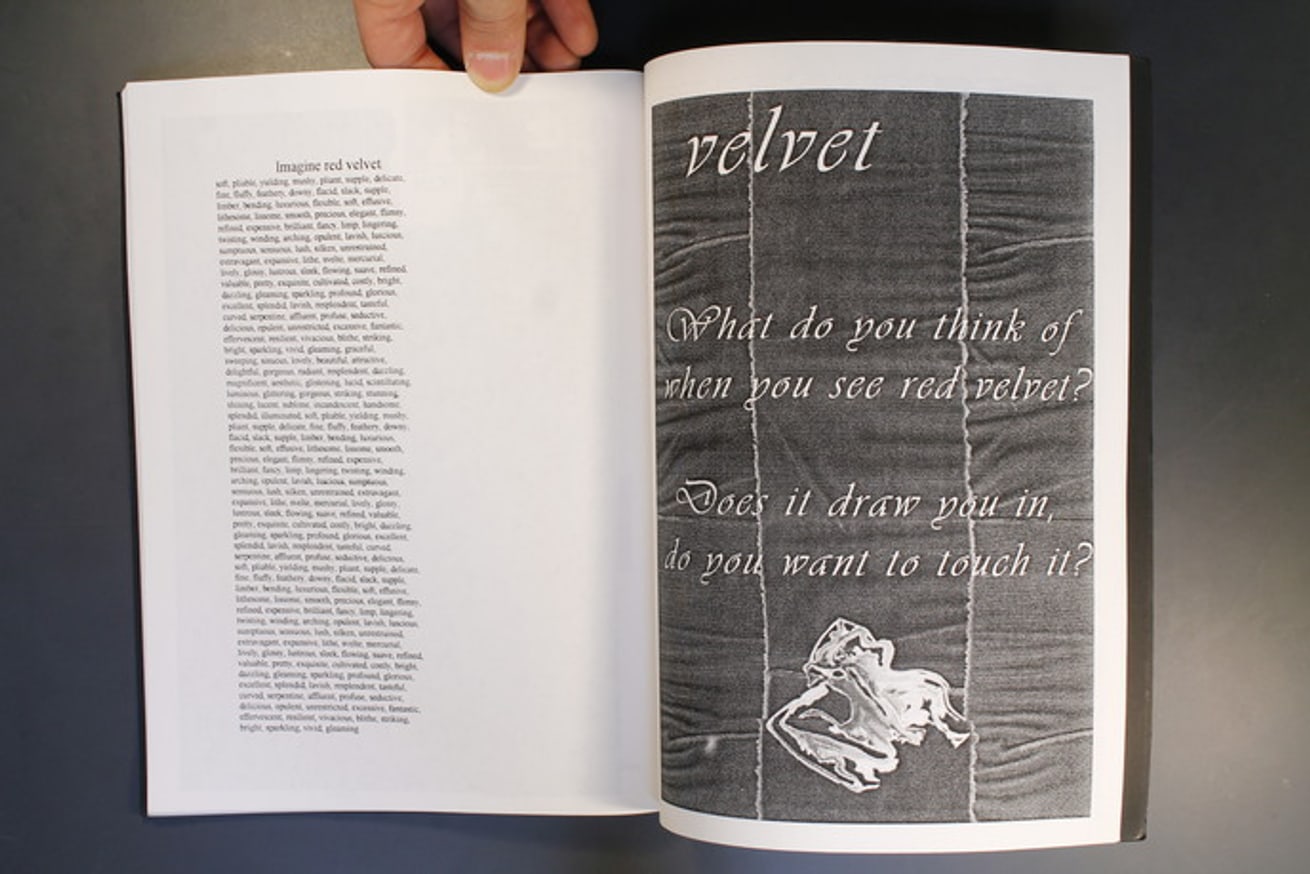 Imagine red velvet
soft, pliable, yielding, mushy, pliant, supple, delicate,
fine, fluffy, feathery, downy, flacid, slack, supple,
limber, bending, luxurious, flexible, soft, effusive,
lithesome, lissome, smooth, precious, elegant, flimsy,
refined, expensive, brilliant, fancy, limp, lingering,
twisting, winding, arching, opulent, lavish, luscious,
sumptuous, sensuous, lush, silken, unrestrained,
extravagant, expansive, lithe, svelte, mercurial,
lively, glossy, lustrous, sleek, flowing, suave, refined,
valuable, pretty, exquisite, cultivated, costly, bright,
dazzling, gleaming, sparkling, profound, glorious,
excellent, splendid, lavish, resplendent, tasteful,
curved, serpentine, affluent, profuse, seductive,
delicious, opulent, unrestricted, excessive, fantastic,
effervescent, resilient, vivacious, blithe, striking,
bright, sparkling, vivid, gleaming, graceful,
sweeping, sinuous, lovely, beautiful, attractive,
delightful, gorgeous, radiant, resplendent, dazzling,
magnificent, aesthetic, glistening, lucid, scintillating,
luminous, glittering, gorgeous, striking, stunning,
shining, lucent, sublime, incandescent, handsome,
splendid, illuminated, soft, pliable, yielding, mushy,
pliant, supple, delicate, fine, fluffy, feathery, downy,
flacid, slack, supple, limber, bending, luxurious,
flexible, soft, effusive, lithesome, lissome, smooth,
precious, elegant, flimsy, refined, expensive,
brilliant, fancy, limp, lingering, twisting, winding,
arching, opulent, lavish, luscious, sumptuous,
sensuous, lush, silken, unrestrained, extravagant,
expansive, lithe, svelte, mercurial, lively, glossy,
lustrous, sleek, flowing, suave, refined, valuable,
pretty, exquisite, cultivated, costly, bright, dazzling,
gleaming, sparkling, profound, glorious, excellent,
splendid, lavish, resplendent, tasteful, curved,
serpentine, affluent, profuse, seductive, delicious,
soft, pliable, yielding, mushy, pliant, supple, delicate,
fine, fluffy, feathery, downy, flacid, slack, supple,
limber, bending, luxurious, flexible, soft, effusive,
lithesome, lissome, smooth, precious, elegant, flimsy,
refined, expensive, brilliant, fancy, limp, lingering,
twisting, winding, arching, opulent, lavish, luscious,
sumptuous, sensuous, lush, silken, unrestrained,
extravagant, expensive, lithe, svelte, mercurial,
lively, glossy, lustrous, sleek, flowing, suave, refined,
valuable, pretty, exquisite, cultivated, costly, bright,
dazzling, gleaming, sparkling, profound, glorious,
excellent, splendid, lavish, resplendent, tasteful,
curved, serpentine, affluent, profuse, seductive,
delicious, opulent, unrestricted, excessive, fantastic,
effervescent, resilient, vivacious, blithe, striking,
bright, sparkling, vivid, gleaming
velvet
What do you think of
when you see red velvet?
Does it draw you in,
do you want to touch it?